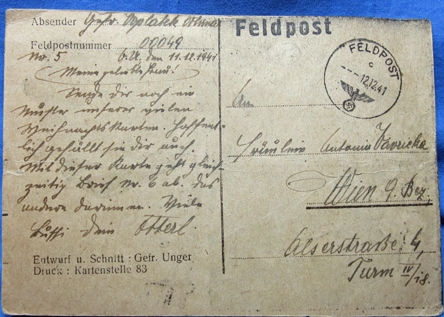 Absender Gefr. Oplakk Otmar
Feldpostnummer 00049
No. 5 O.U. den 11.12.1941
Sende dir noch ein
Muster unserer vielen
Weihnachtskarten. Hoffent-
lich gefällt sie dir auch.
Mit dieser Karte geht gleich-
zeitig Brief Nr. 6 ab. das
andere darinnen. Viele
Bussi dein Otterl.
Entwurf u. Schnitt: Gefr. Unger
Druck: Kartenstelle 83
Feldpost
FELDPOST
c
12.12.41
An
Fräulein Antonia
Wien 9. Bez.
Alserstraße 4,
Turm IV/18.